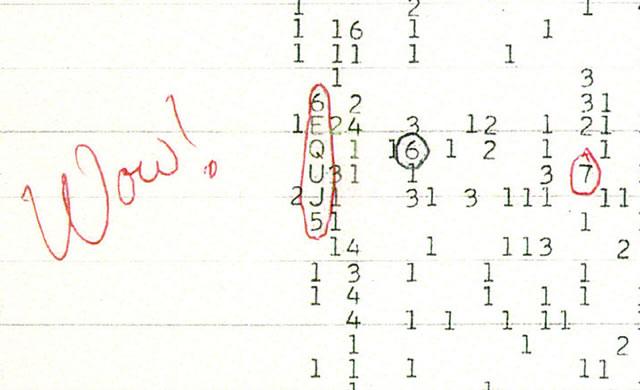 1 2 1
1 16 1 1
1 11 1 1
1 3
6 2 31
1E24 3 12 1 21
Q 1 16 1 2 1 1
Wow!
U31 1 3 7
2J1 31 3 111 11
51 1
14 1 113 2
1 3 1 1 1
1 4 1 1 1
4 1 1 1 11
1 1 2
1 1 1 11